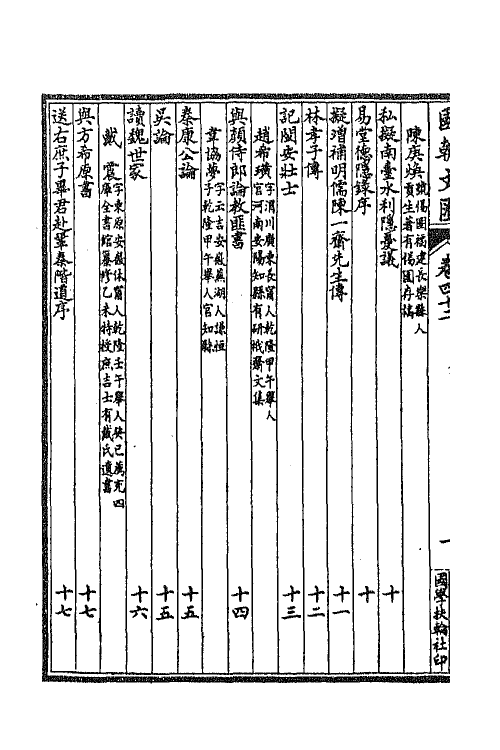 國朝文匯 卷四十二 一 國學扶輪社印
陳庚煥 號惕園福建長樂縣人
貢生著有惕園存稿
私擬南臺水利隱憂議 十
易堂德隱錄序 十
擬增補明儒陳一齋先生傳 十一
林孝子傳 十二
記閩安壯士 十三
趙希璜 字渭川廣東長甯人乾隆甲午舉人
官河南安陽知縣有研栰齋文集
與顏侍郎論教匪書 十四
韋協夢 字云吉安徽蕪湖人謙恒
子乾隆甲午舉人官知縣
秦康公論 十五
吳論 十五
讀魏世家 十六
戴震 字東原安徽休甯人乾隆壬午舉人癸巳薦充四
庫全書館纂修乙未特授庶吉士有戴氏遺書
與方希原書 十七
送右庶子畢君赴鞏秦階道序 十七